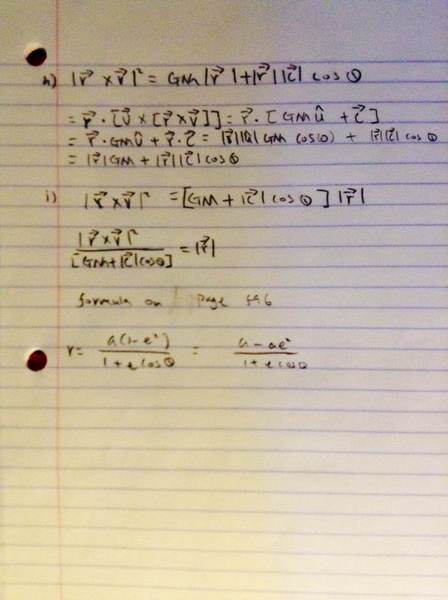 h) |r⃗ × v⃗|² = GM|r⃗| + |r⃗||c⃗| cos θ
= r⃗ · [v⃗ × [r⃗ × v⃗]] = r⃗ · [GM û + c⃗]
= r⃗ · GM û + r⃗ · c⃗ = |r⃗||û| GM cos(0) + |r⃗||c⃗| cos θ
= |r⃗| GM + |r⃗||c⃗| cos θ
i) |r⃗ × v⃗|² = [GM + |c⃗| cos θ] |r⃗|
|r⃗ × v⃗|² / [GM + |c⃗| cos θ] = |r⃗|
formula on page 696
r = a(1 - e²) / 1 + e cos θ = a - ae² / 1 + e cos θ